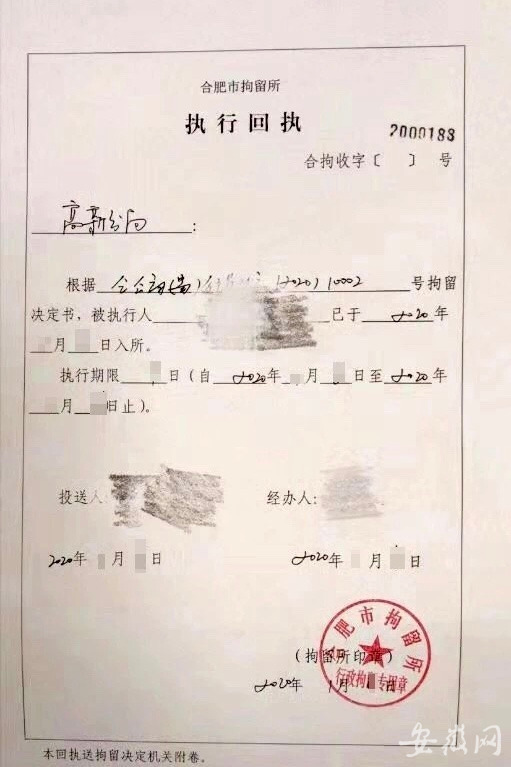 合肥市拘留所
执行回执
2000188
合拘收字〔 〕 号
高新分局:
根据 (2020)10002 号拘留
决定书,被执行人 已于2020年
月 日入所。
执行期限 日(自2020年 月 日至2020年
月 日止)。
投送人: 经办人:
2020年 月 日 2020年 月 日
合肥市拘留所
行政拘 专用章
(拘留所印章)
2020年1月 日
本回执送拘留决定机关附卷。
安徽网